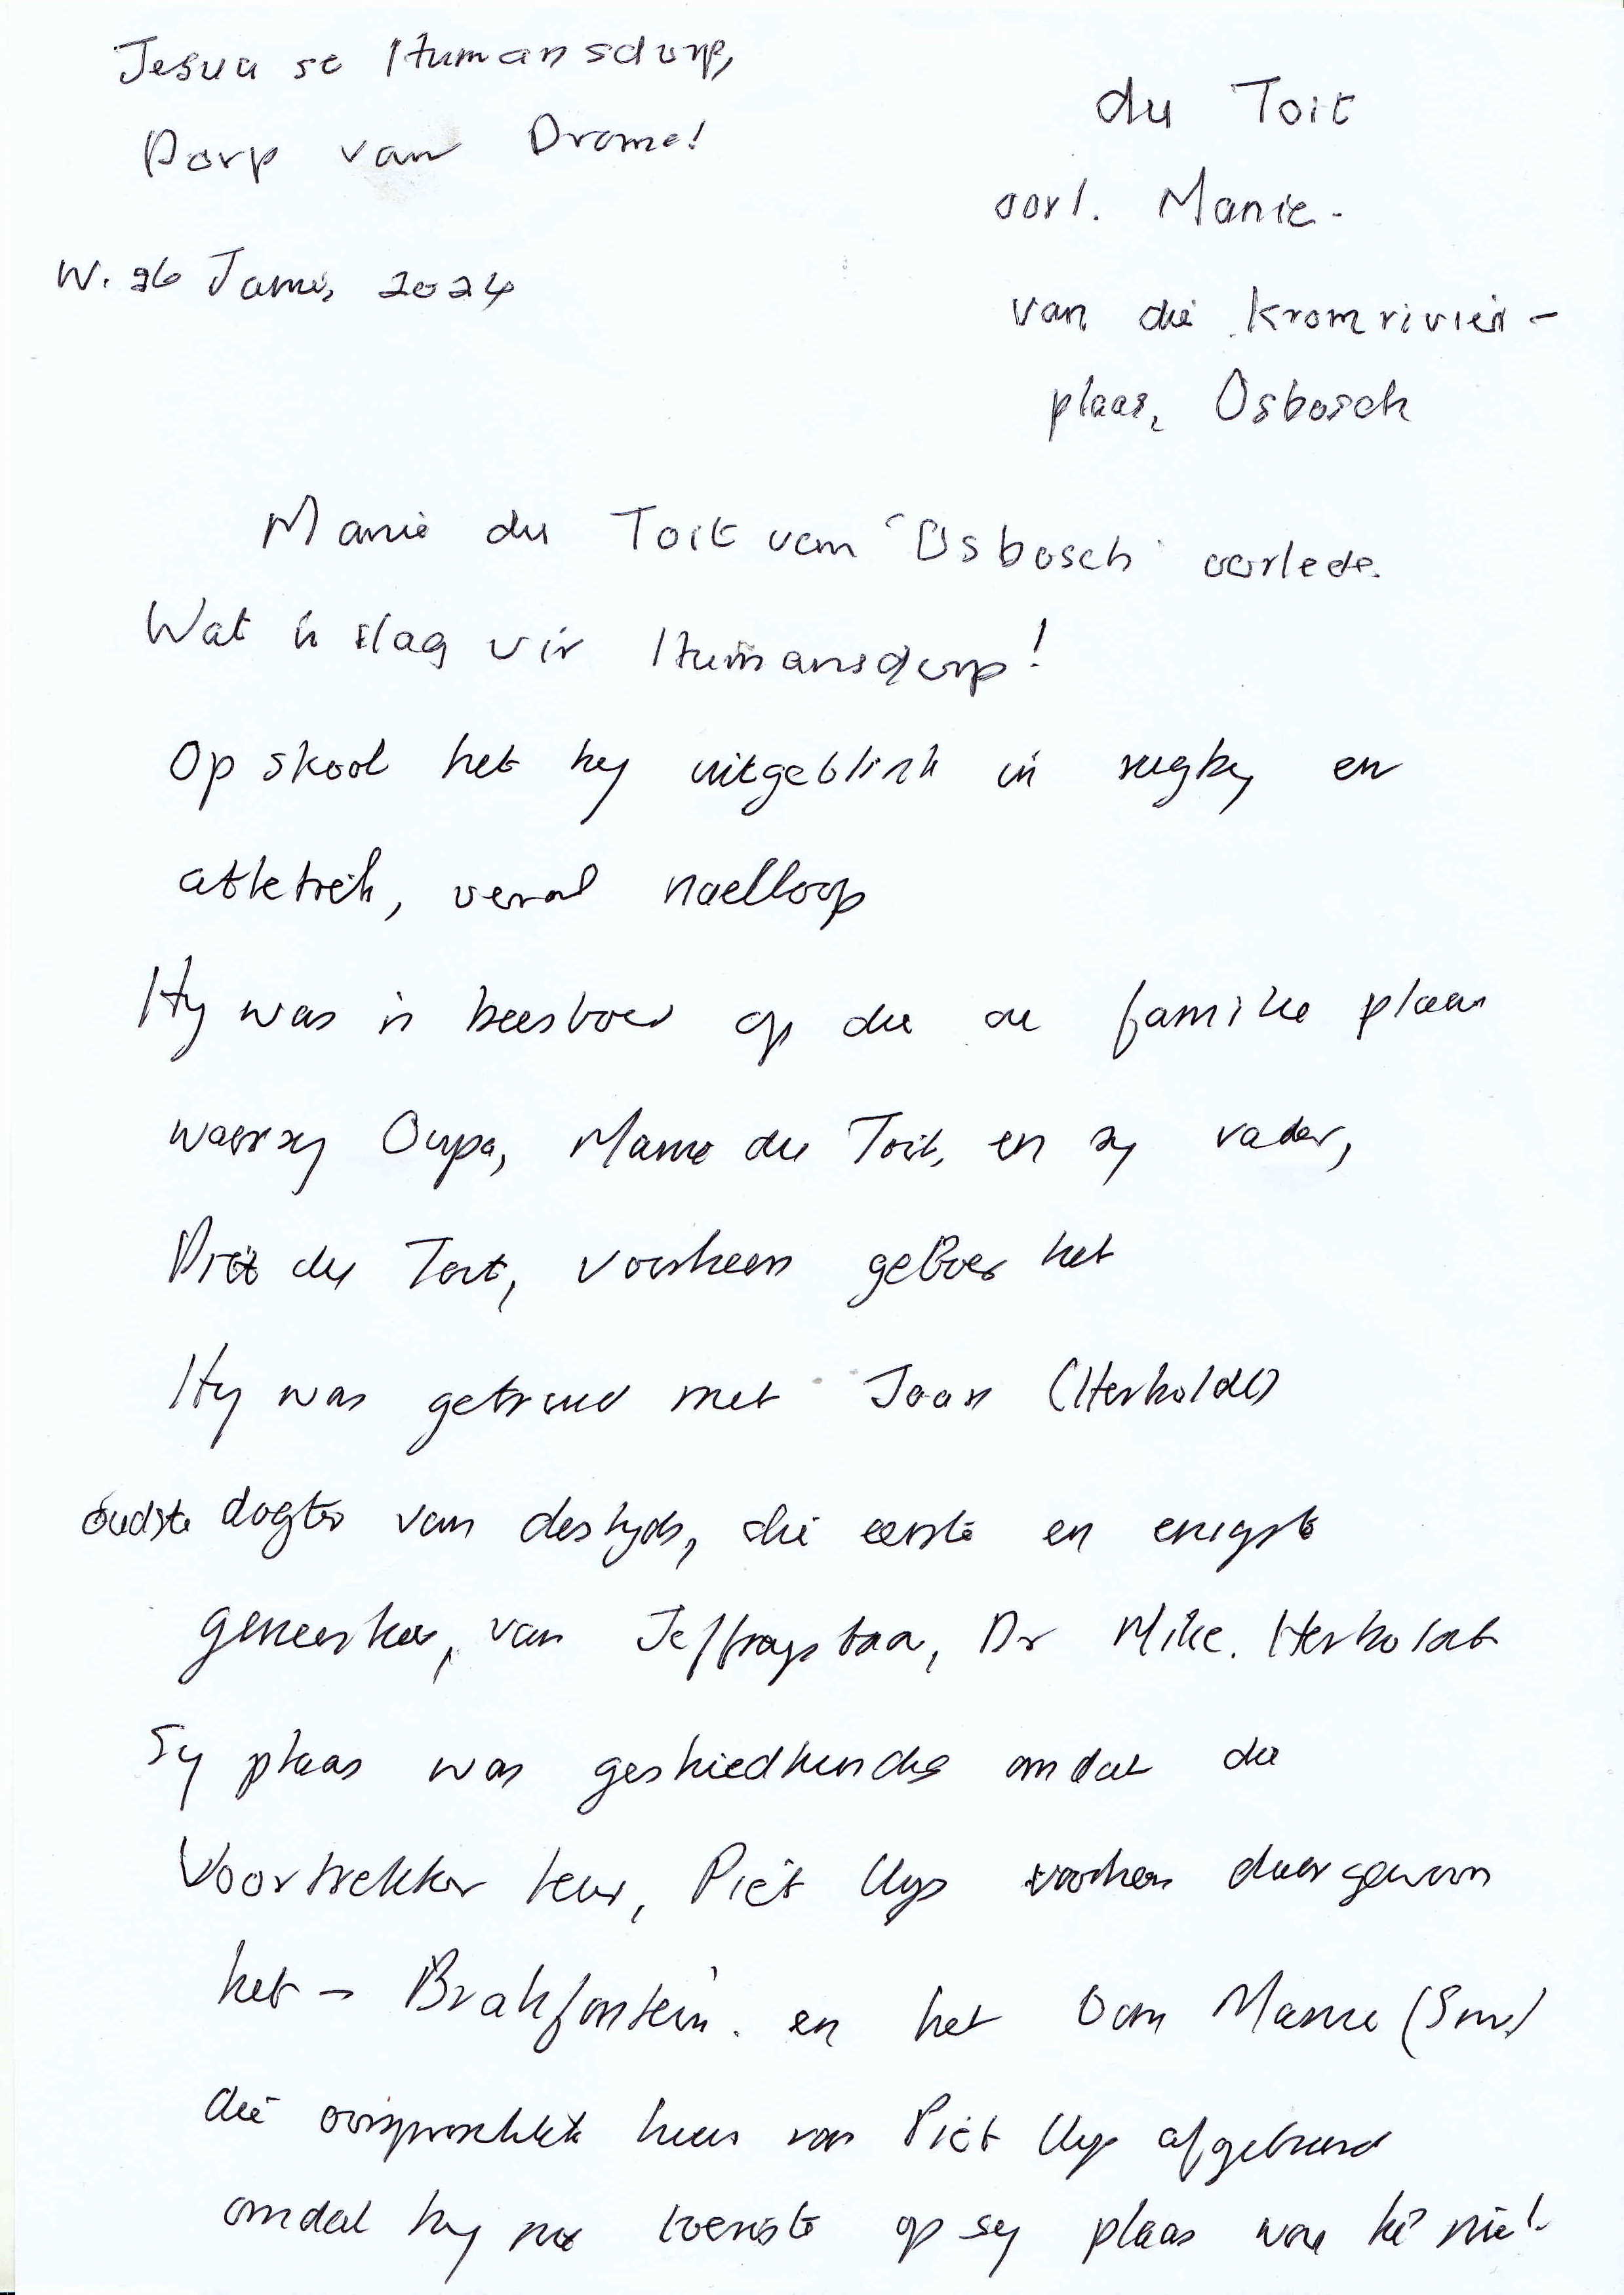 Jesua se Humansdorp,
Dorp van Drome!
W. 26 Janu, 2024
du Toit
oorl. Manie -
van die Kromrivier -
plaas, Osbosch
Manie du Toit van "Osbosch" oorlede.
Wat 'n slag vir Humansdorp!
Op skool het hy uitgeblink in rugby en
atletiek, veral naelloop
Hy was 'n beesboer op die ou familie plaas
waar sy Oupa, Manie du Toit, en sy vader,
Piet du Toit, voorheen geboer het
Hy was getroud met Joan (Herholdt)
oudste dogter van destyds, die eerste en enigste
geneesheer, van Jeffreysbaai, Dr Mike. Herholdt
Sy plaas was geskiedkundig omdat die
Voortrekker leier, Piet Uys voorheen daar gewoon
het - Brakfontein. en het Oom Manie (Snr)
die oorspronklike huis van Piet Uys afgebreek
omdat hy nie toeriste op sy plaas wou hê nie!